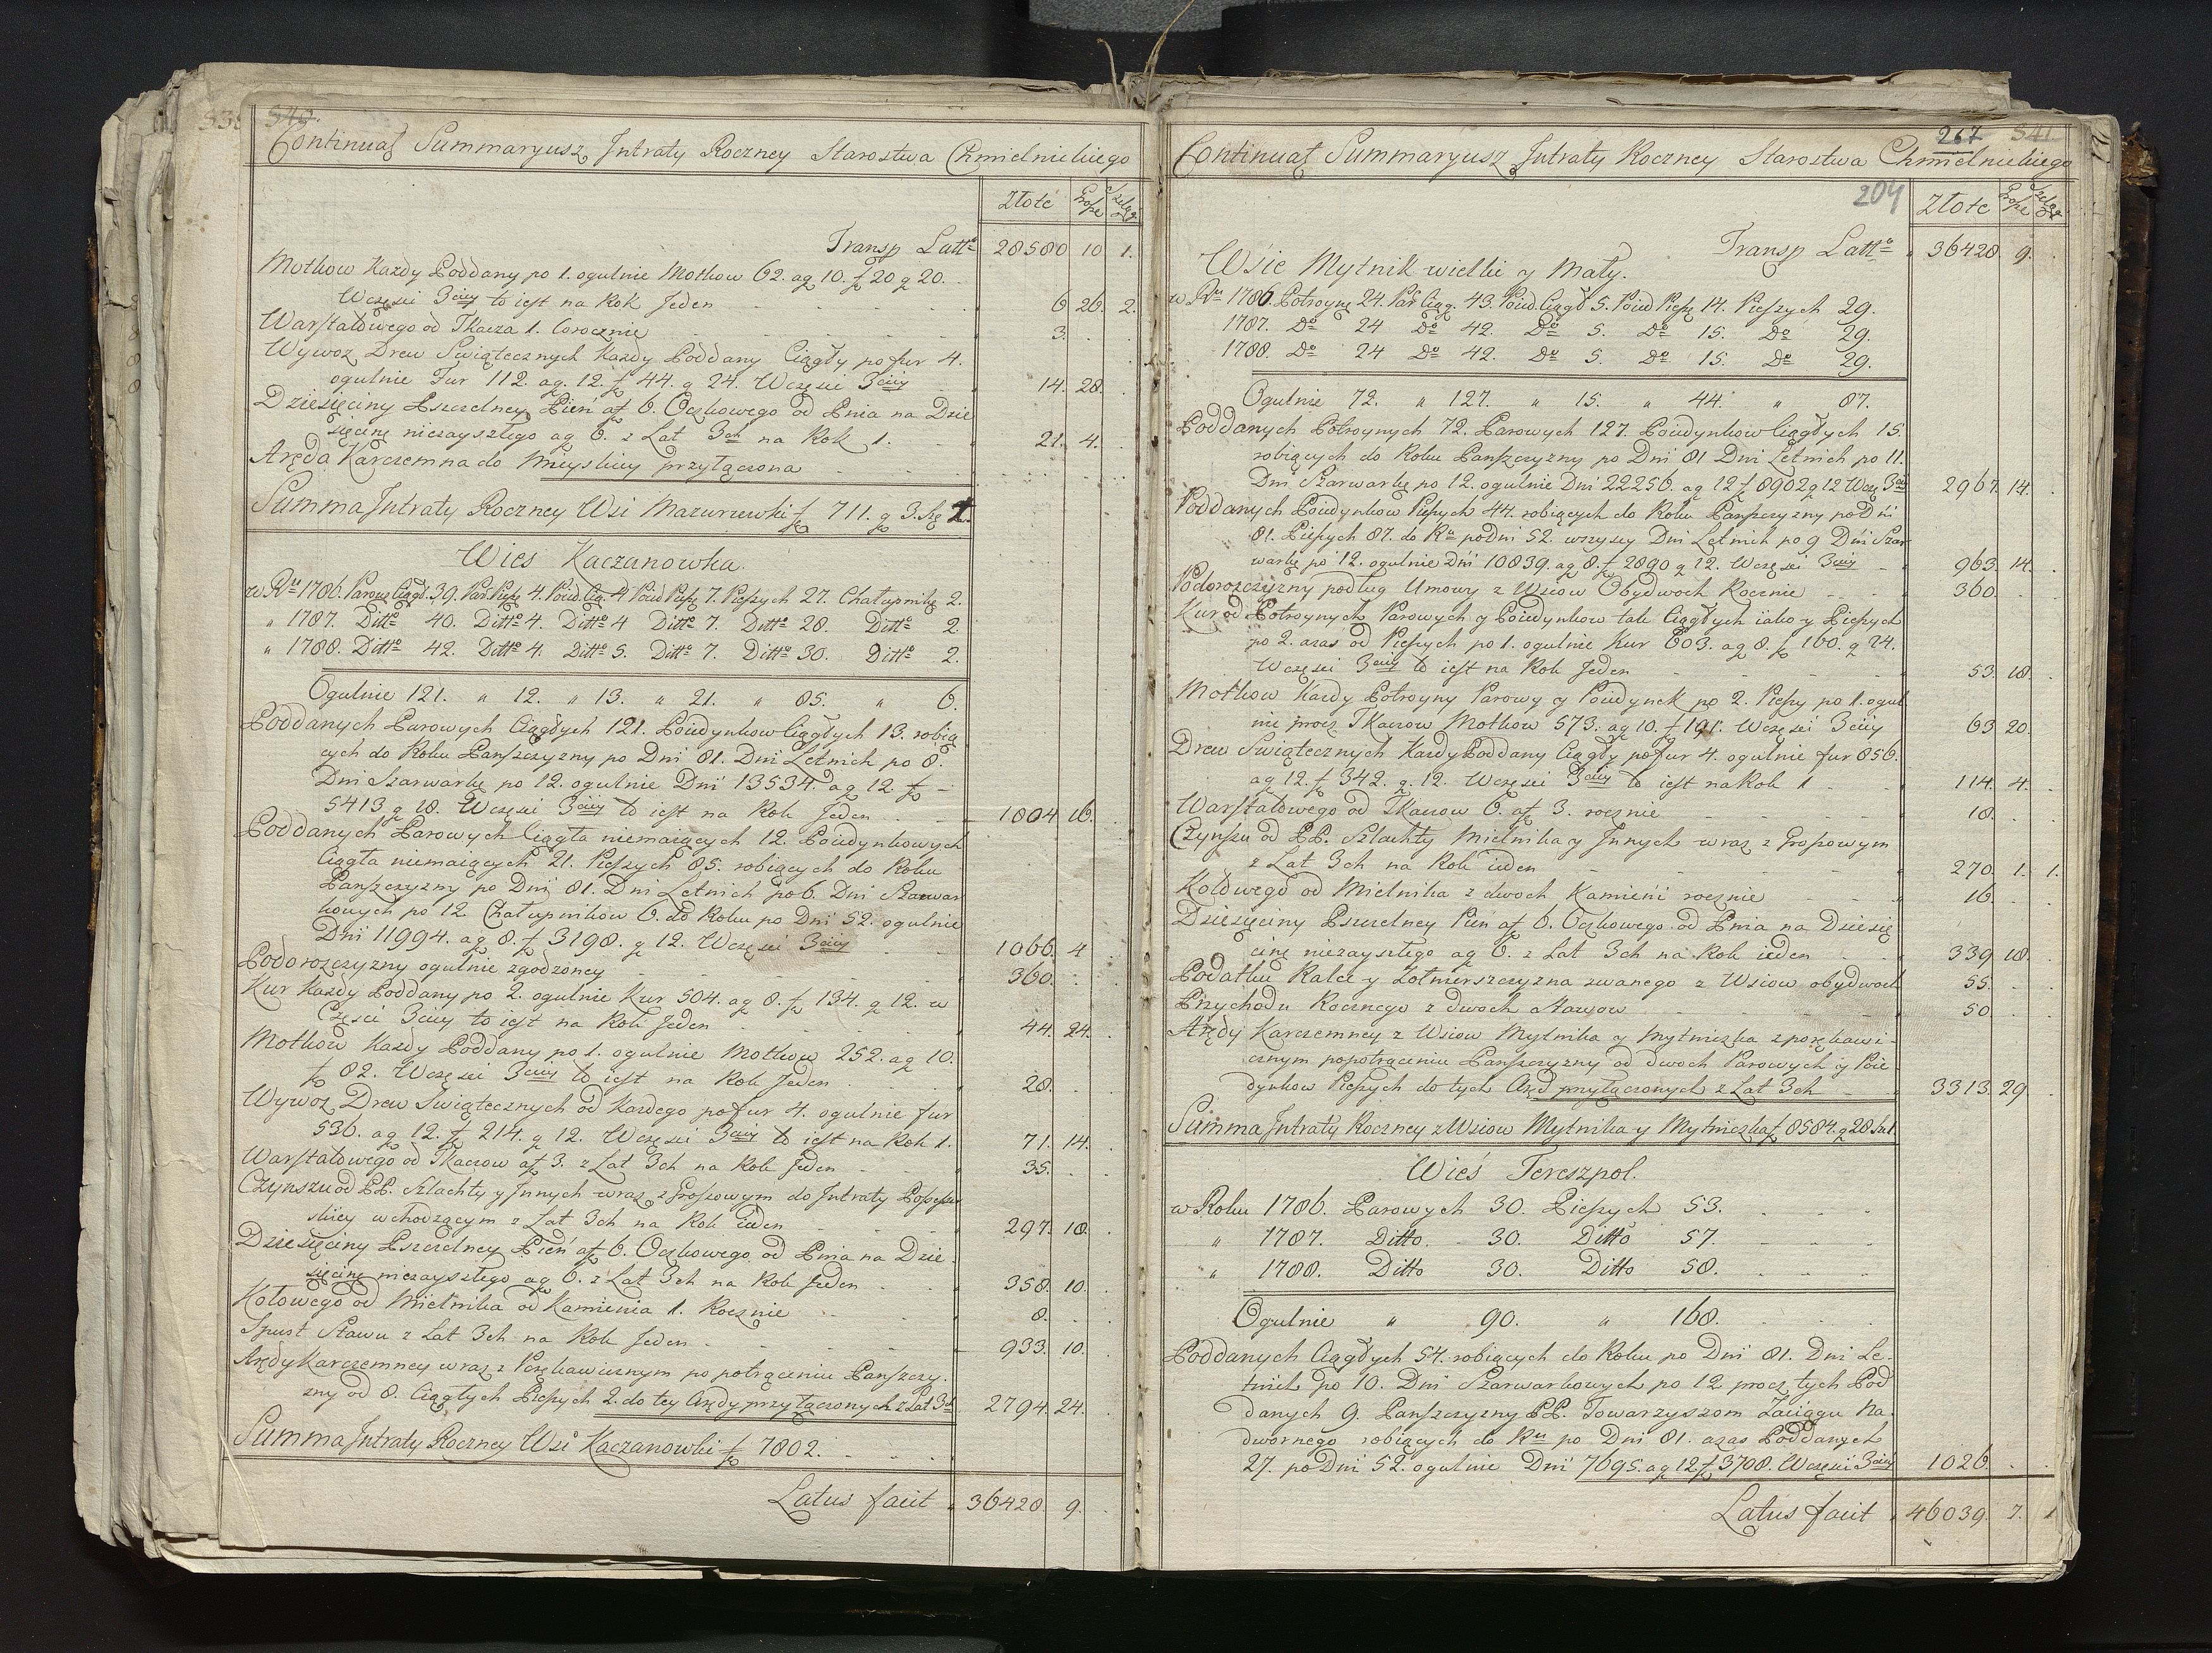 540.
Continuat Summaryusz Intraty Roczney Starostwa Chmielnickiego
Złote Grosze Szeląg
Transp Latto 28580 10 1.
Motkow Każdy Poddany po 1. ogulnie Motkow 62. ag 10. f 20 g 20.
Wczęsci 3ciey to iest na Rok Jeden 6 26. 2.
Warsztatowego od Tkacza 1. Corocznie 3.
Wywoz Drew Swiątecznych Każdy Poddany Ciągły po fur 4.
ogulnie Fur 112. ag. 12. f 44. g 24. Wczęsci 3ciey 14. 28.
Dziesięciny Pszczelney Pień af 6. Oczkowego od Pnia na Dzie
sięcinę niezayszłego ag 6. z Lat 3ch na Rok 1. 21. 4.
Aręda Karczemna do Mazyslicy przyłączona
Summa Intraty Roczney Wsi Mazurowki f 711. g 3. sz 2.
Wies Kaczanowka.
w Ru 1786. Parowę Ciągł. 39. Par. Pieszę 4. Poied. Cią. 4 Poied Pieszę 7. Pieszych 27. Chałupnikę 2.
" 1787. Ditto 40. Ditto 4. Ditto 4 Ditto 7. Ditto 28. Ditto 2.
" 1788. Ditto 42. Ditto 4. Ditto 5. Ditto 7. Ditto 30. Ditto 2.
Ogulnie 121. " 12. " 13. " 21. " 85. " 6.
Poddanych Parowych Ciągłych 121. Poiedynkow Ciągłych 13. robią
cych do Roku Pańszczyzny po Dni 81. Dni Letnich po 8.
Dni Szarwarkę po 12. ogulnie Dni 13534. ag 12. f –
5413 g 18. Wczęsci 3ciey to iest na Rok Jeden 1804 16.
Poddanych Parowych Ciągła niemaiących 12. Poiedynkowych
Ciągła niemaiących 21. Pieszych 85. robiących do Roku
Pańszczyzny po Dni 81. Dni Letnich po 6. Dni Szarwar
kowych po 12 Chałupnikow 6. do Roku po Dni 52. ogulnie
Dni 11994. ag 8. f 3198. g 12. Wczęsci 3ciey 1066. 4
Podorozczyzny ogulnie zgodzoney 360.
Kur Każdy Poddany po 2. ogulnie Kur 504. ag 8. f 134. g 12. w
Części 3ciey to iest na Rok Jeden 44. 24.
Motkow Każdy Poddany po 1. ogulnie Motkow 252. ag 10.
f 82. Wczęsci 3ciey to iest na Rok Jeden 28.
Wywoz Drew Swiątecznych od Każdego po fur 4. ogulnie fur
536. ag 12. f 214. g 12. Wczęsci 3ciey to iest na Rok 1. 71. 14.
Warsztatowego od Tkaczow af 3. z Lat 3ch na Rok Jeden 35.
Czynszu od PP. Szlachty y Innych wraz z Groszowym do Intraty Possesso
wchodzącym z Lat 3ch na Rok ieden 297. 18.
Dziesięciny Pszczelney Pień af 6. Oczkowego od Pnia na Dzie
sięcinę niezayszłego ag 6. z Lat 3ch na Rok Jeden 358. 10.
Kołowego od Mielnika od Kamienia 1. Rocznie 8.
Spust Stawu z Lat 3ch na Rok Jeden 933. 10.
Arędy Karczemney wraz z Porękawicznym po potrąceniu Pańszczy
zny od 8. Ciągłych Pieszych 2. do tey Arędy przyłączonych z Lat 3ch 2794. 24.
Summa Intraty Roczney Wsi Kaczanowki f 7802.
Latus facit 36428. 9.
267 541
Continuat Summaryusz Intraty Roczney Starostwa Chmielnickiego
204
Złote Grosze Szeląg
Transp Latto 36428. 9.
Wsie Mytnik wielki y Mały.
w Ru 1786. Potroynę 24. Par Ciąg. 43. Poied. Ciągł 5. Poied Pieszę 14. Pieszych 29.
1787. Do 24 Do 42. Do 5. Do 15. Do 29.
1788. Do 24 Do 42. Do 5. Do 15. Do 29.
Ogulnie 72. " 127. " 15. " 44. " 87.
Poddanych Potroynych 72. Parowych 127. Poiedynkow Ciągłych 15.
robiących do Roku Pańszczyzny po Dni 81 Dni Letnich po 11.
Dni Szarwarkę po 12. ogulnie Dni 22256. ag 12 f 8902 g 12 Wczę 3ciey 2967. 14.
Poddanych Poiedynkow Pieszych 44. robiących do Roku Pańszczyzny po Dni
81. Pieszych 87. do Ru po dni 52. wszyscy Dni Letnich po 9 Dni Szar
warkę po 12. ogulnie Dni 10839. ag 8. f 2890 g 12. Wczęsci 3ciey 963. 14.
Podorozczyzny podług Umowy z Wsiow Obydwoch Rocznie 360.
Kur od Potroynych Parowych y Poiedynkow tak Ciągłych iako y Pieszych
po 2. azas od Pieszych po 1. ogulnie Kur 603. ag 8. f 160. g 24.
Wczęsci 3ciey to iest na Rok Jeden 53. 18.
Motkow Każdy Potroyny Parowy y Poiedynek po 2. Pieszy po 1. ogul
nie procz Tkaczow Motkow 573. ag 10. f 191. Wczęsci 3ciey 63 20.
Drew Swiątecznych Każdy Poddany Ciągły po fur 4. ogulnie fur 856.
ag 12. f 342. g. 12. Wczęsci 3ciey to iest na Rok 1 114. 4.
Warsztatowego od Tkaczow 6. af 3. rocznie 18.
Czynszu od PP. Szlachty Mielnika y Innych wraz z Groszowym
z Lat 3ch na Rok ieden 270. 1. 1.
Kołowego od Mielnika z dwoch Kamieni rocznie 16.
Dziesięciny Pszczelney Pień af 6. Oczkowego od Pnia na Dziesię
cinę niezayszłego ag 6. z Lat 3ch na Rok ieden 339 18.
Podatku Ralce y Zołnierszczyzna zwanego z Wsiow obydwoch 55.
Przychodu Rocznego z dwoch Stawow 50.
Arędy Karczemney z Wsiow Mytnika y Mytniczka z porękawi-
cznym po potrąceniu Pańszczyzny od dwoch Parowych y Poie
dynkow Pieszych do tych Aręd przyłączonych z Lat 3ch 3313. 29
Summa Intraty Roczney z Wsiow Mytnika y Mytniczka f 8584. g 28 sz 1
Wieś Tereszpol.
w Roku 1786. Parowych 30. Pieszych 53.
" 1787. Ditto 30. Ditto 57.
" 1788. Ditto 30. Ditto 58.
Ogulnie " 90. " 168.
Poddanych Ciągłych 54. robiących do Roku po Dni 81. Dni Le-
tnich po 10. Dni Szarwarkowych po 12 procz tych Pod
danych 9. Pańszczyzny PP. Towarzyszom Zaciągu Na
dwornego robiących do Ru po Dni 81. azas Poddanych
27. po Dni 52. ogulnie Dni 7695. ag 12 f 3708. Wczęsci 3ciey 1026.
Latus facit 46039. 7. 1